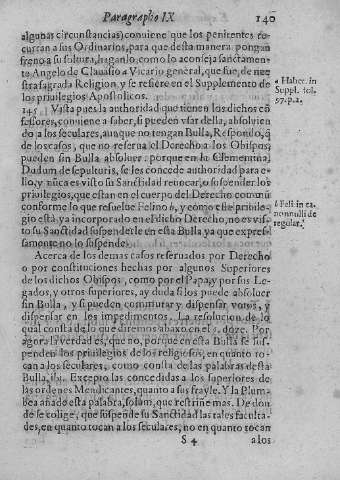 Paragrapho IX 140
algunas circunstancias) conuiene que los penitentes re-
curran a sus Ordinarios, para que desta manera pongan
freno a su soltura, haganlo, como lo aconseja sanctamen-
te Angelo de Clauasio a Vicario general, que fue, de nue
stra sagrada Religion, y se refiere en el Supplemento de
los priuilegios Apostolicos.
a Habet. in
Suppl. fol.
97. p. 2.
145 Vista pues la authoridad que tienen los dichos cō
fessores, conuiene a saber, si pueden vsar della, absoluien
do a los seculares, aunque no tengan Bulla, Respondo, q̄
de los casos, que no reserua el Derecho a los Obispos,
pueden sin Bulla absoluer: porque en la Clementina,
Dudum de sepulturis, se les concede authoridad para e-
llo, y nūca es visto su Sanctidad reuocar, o suspender los
priuilegios, que estan en el cuerpo del Derecho comun
conforme lo que resuelue Felino b, y como este priuile-
gio està ya incorporado en el dicho Derecho, no es vis-
to su Sanctidad suspenderle en esta Bulla ya que expres-
samente no lo suspende.
b Feli. in ca.
nonnulli de
regular.
Acerca de los demas casos reseruados por Derecho
o por constituciones hechas por algunos Superiores
de los dichos Obispos, como por el Papa, y por sus Le-
gados, y otros superiores, ay duda si los puede absoluer
sin Bulla, y si pueden commutar y dispensar votos, y
dispensar en los impedimentos. La resolucion de lo
qual consta de lo que diremos abaxo en el §. doze. Por
agora la verdad es, que no, porque en esta Bulla se sus-
penden los priuilegios de los religiosos, en quanto to-
can a los seculares, como consta de las palabras desta
Bulla, ibi. Excepto las concedidas a los superiores de
las ordenes Mendicantes, quanto a sus frayles. Y la Plum-
bea añade esta palabra, solùm, que restriñe mas. De don
de se colige, que suspende su Sanctidad las tales faculta-
des, en quanto tocan a los seculares, no en quanto tocan
S 4 a los